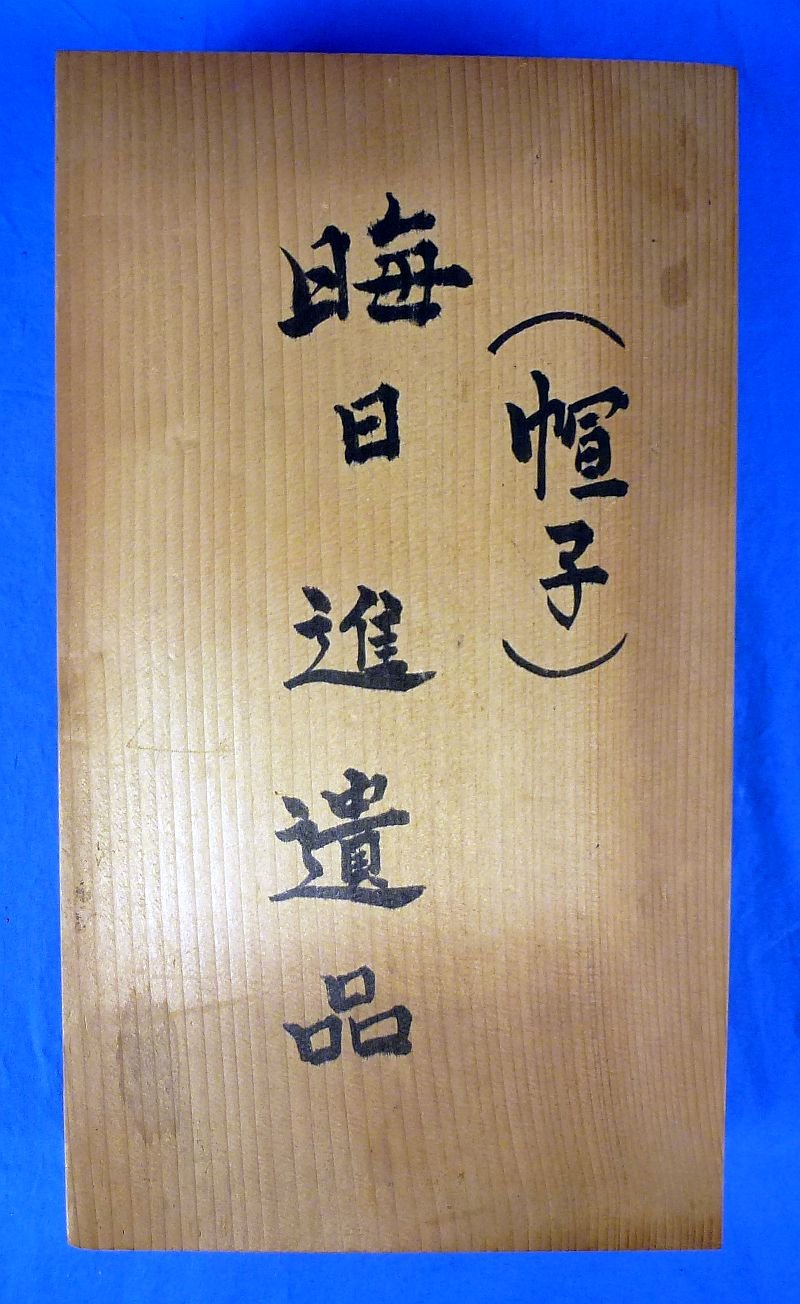 （帽子）
晦日進遺品